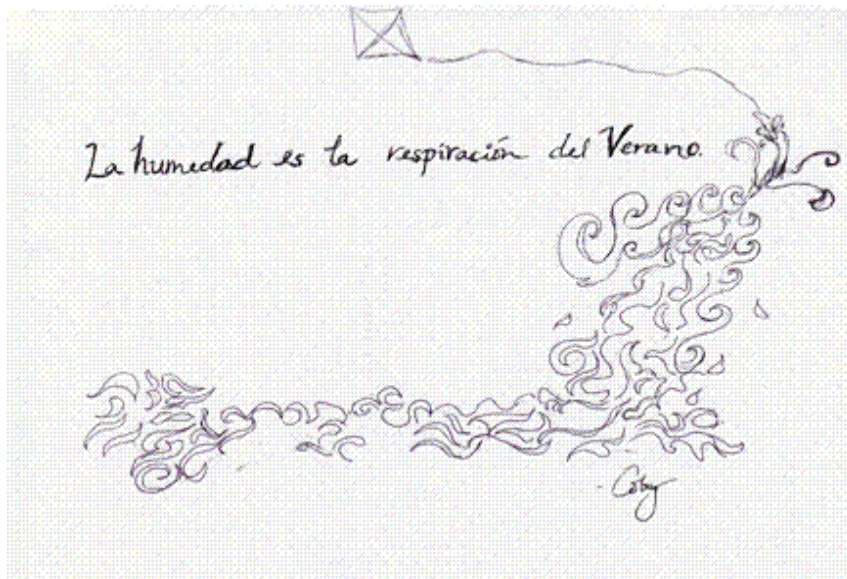 La humedad es la respiración del Verano.
- Coby